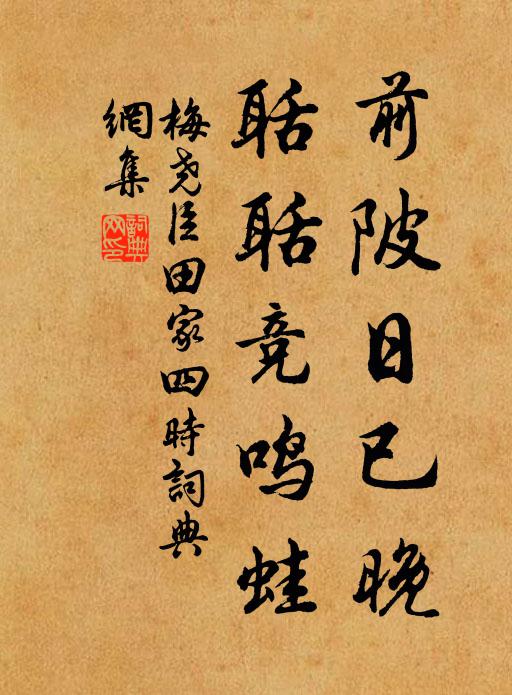 前陂日已晚
聒聒竞鸣蛙
梅尧臣田家四時詞典
網集
詞典
网印